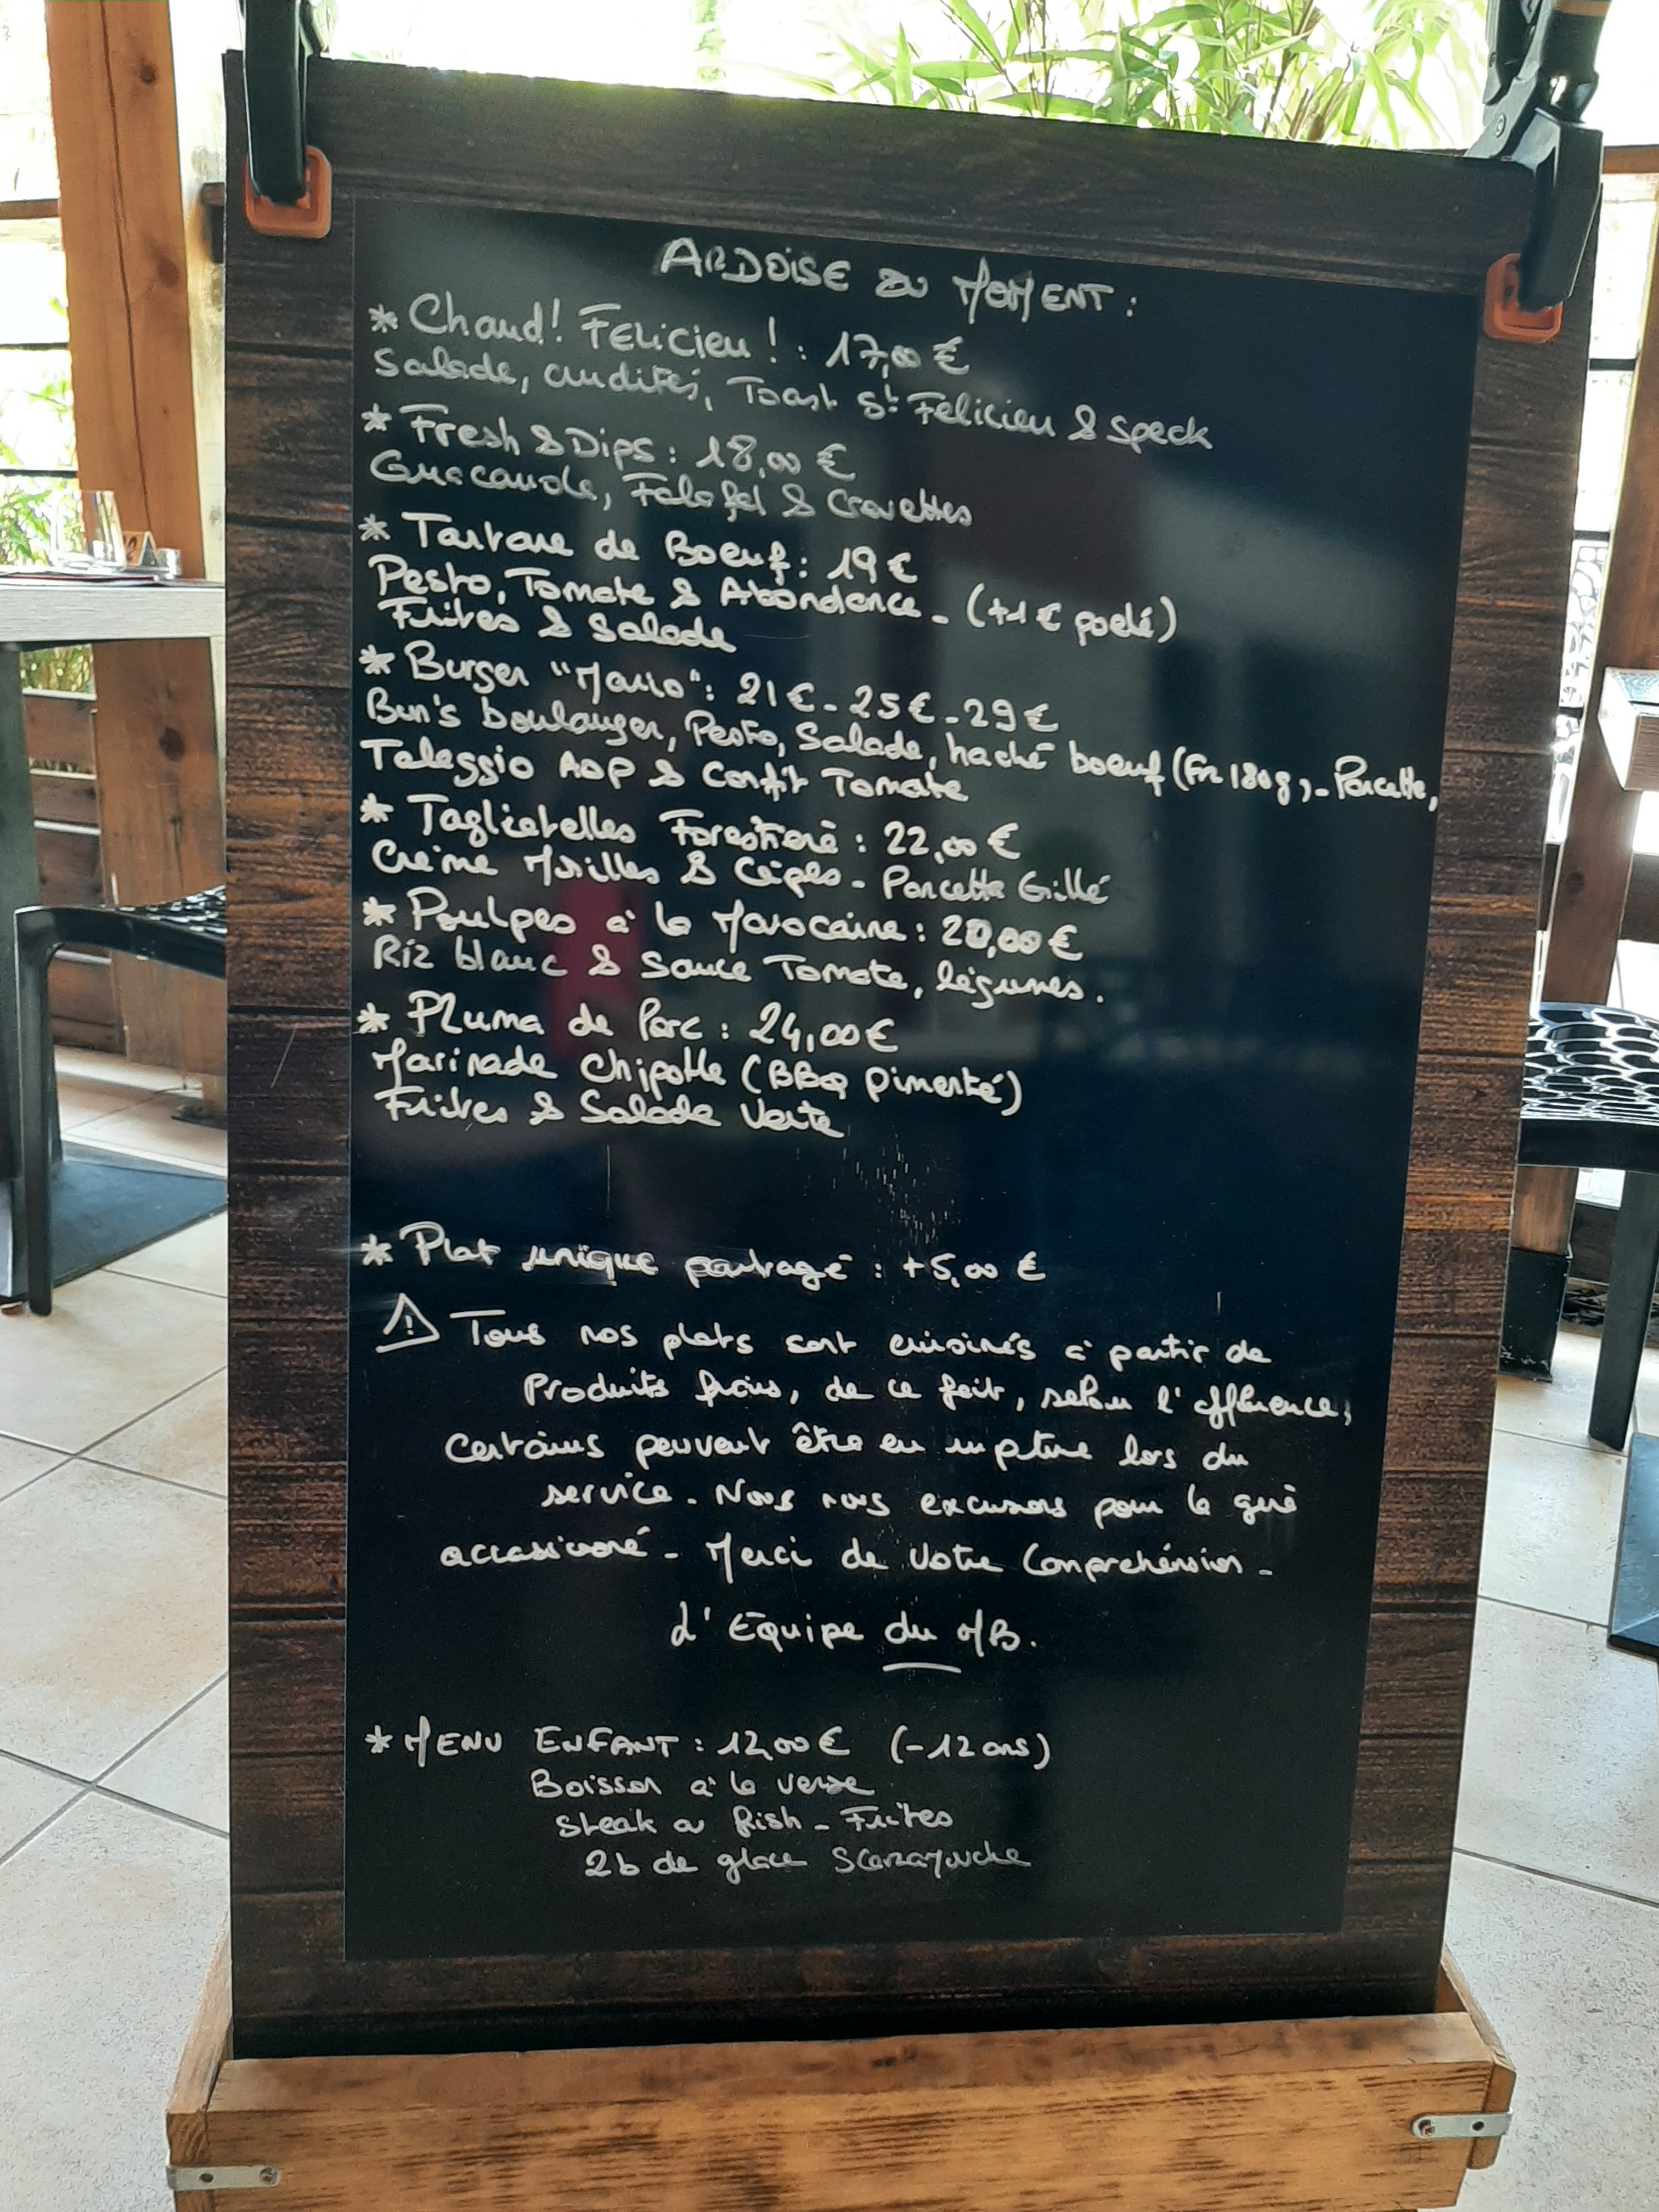 ARDOISE DU MOMENT :
* Chaud! FELicieu! : 17,00 €
Salade, crudités, Toast St Felicieu & Speck
* Fresh & Dips : 18,00 €
Guacamole, Falafel & Crevettes
* Tartare de Boeuf : 19 €
Pesto, Tomate & Abondence - (+1 € poelé)
Frites & Salade
* Burger "Mario" : 21 € - 25 € - 29 €
Bun's boulanger, Pesto, Salade, haché boeuf (Fr 180g) - Porcetta,
Taleggio AOP & Confit Tomate
* Tagliatelles Forestière : 22,00 €
Crème Morilles & Cèpes - Porcetta Grillé
* Poulpes à la Marocaine : 20,00 €
Riz blanc & Sauce Tomate, légumes.
* Pluma de Porc : 24,00 €
Marinade Chipotle (BBQ Pimenté)
Frites & Salade Verte
* Plat unique partagé : +5,00 €
⚠ Tous nos plats sont cuisinés à partir de
Produits frais, de ce fait, selon l'affluence,
Certains peuvent être en rupture lors du
service. Nous nous excusons pour la gêne
occassionné - Merci de Votre Compréhension -
L'Equipe du MB.
* MENU ENFANT : 12,00 € (-12 ans)
Boisson à la verse
Steak ou fish - Frites
2b de glace Scaramouche